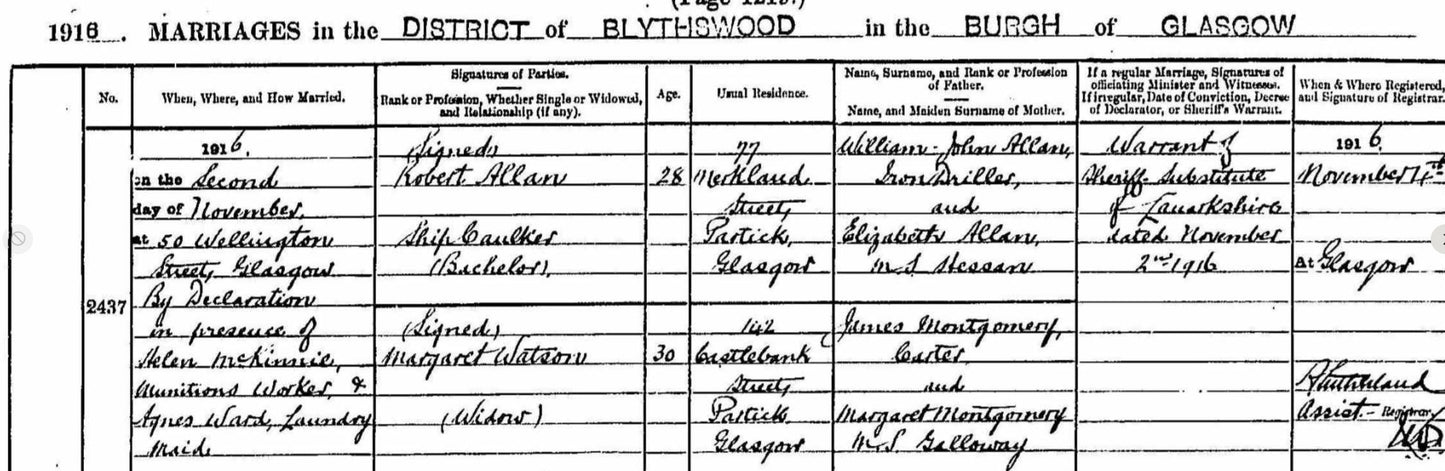 (Page 1219.)
1916. MARRIAGES in the DISTRICT of BLYTHSWOOD in the BURGH of GLASGOW
No.
When, Where, and How Married.
Signatures of Parties.
Rank or Profession, Whether Single or Widowed,
and Relationship (if any).
Age.
Usual Residence.
Name, Surname, and Rank or Profession
of Father.
Name, and Maiden Surname of Mother.
If a regular Marriage, Signatures of
officiating Minister and Witnesses.
If irregular, Date of Conviction, Decree
of Declarator, or Sheriff's Warrant.
When & Where Registered,
and Signature of Registrar.
2437
1916,
on the Second
day of November,
at 50 Wellington
Street, Glasgow
By Declaration
in presence of
Helen McKinnie,
Munitions Worker, &
Agnes Ward, Laundry
Maid.
(Signed)
Robert Allan
Ship Caulker
(Bachelor)
(Signed)
Margaret Watson
(Widow)
28
30
77
Merkland
Street,
Partick,
Glasgow
142
Castlebank
Street,
Partick
Glasgow
William John Allan,
Iron Driller,
and
Elizabeth Allan,
M.S. Hessan
James Montgomery,
Carter
and
Margaret Montgomery
M.S. Galloway
Warrant of
Sheriff Substitute
of Lanarkshire
dated November
2nd 1916
1916,
November 4th
At Glasgow
Assist. Registrar